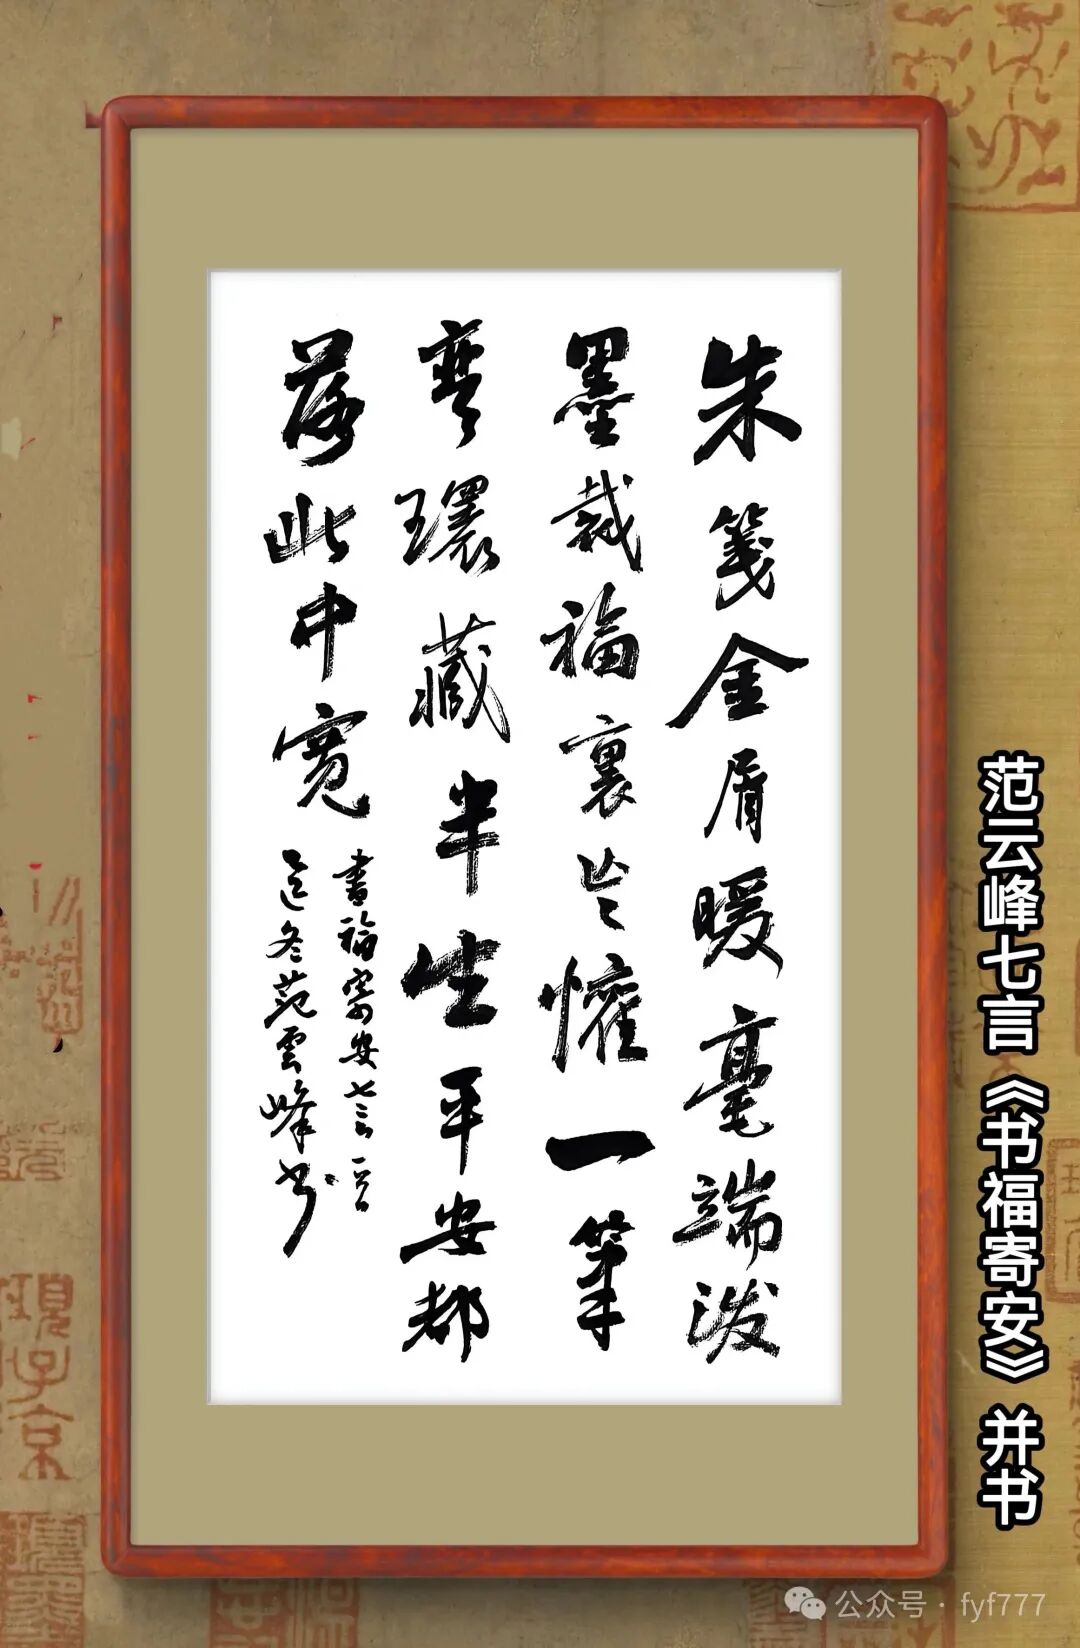 朱箋金屑暖毫端潑
墨裁福裏歲懽一筆
彎環藏半生平安都
落此中寬
書福寄安七言一首
乙巳冬范雲峰书
范云峰七言《书福寄安》并书
公众号·fyf777